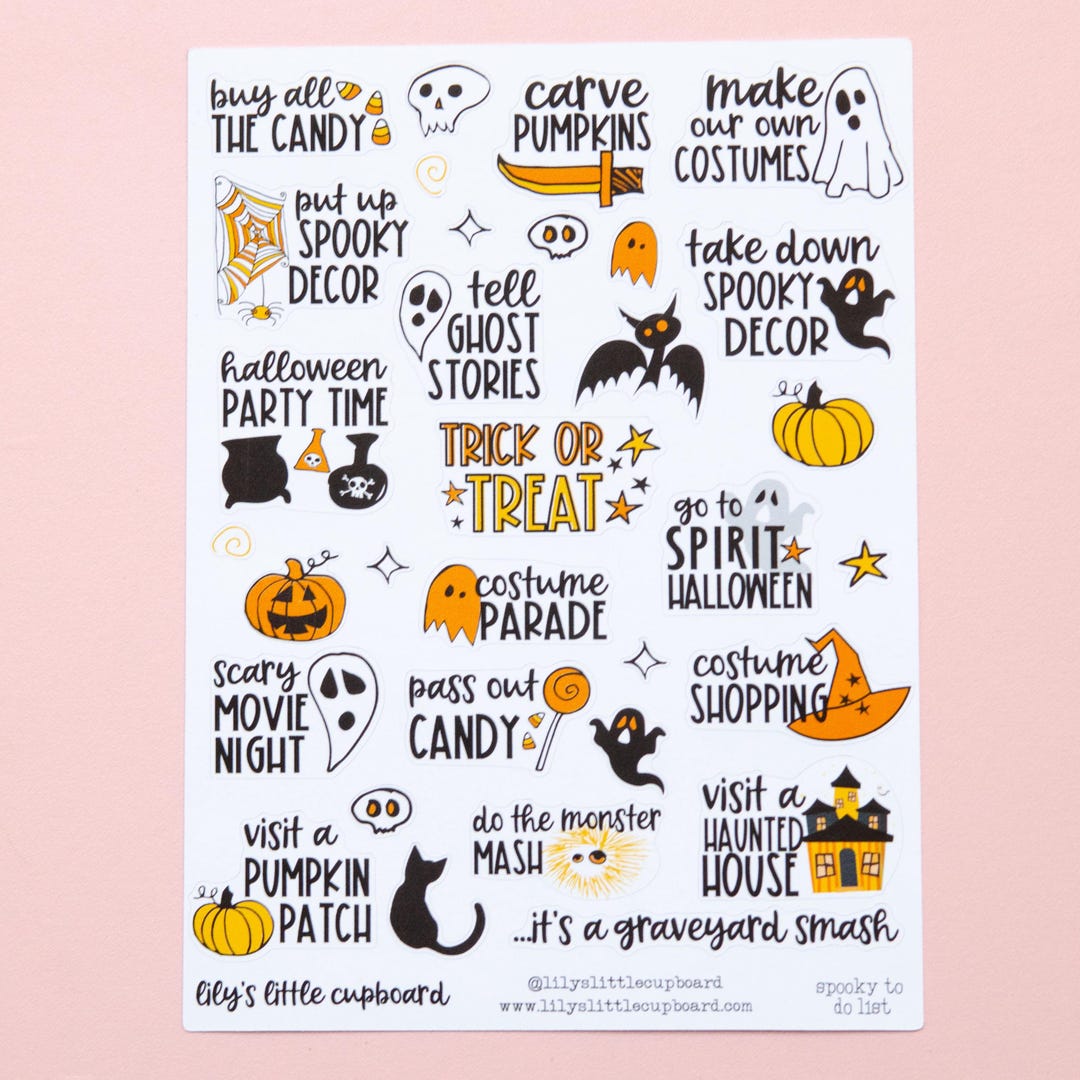 buy all
THE CANDY
carve
PUMPKINS
make
our own
COSTUMES
put up
SPOOKY
DECOR
tell
GHOST
STORIES
take down
SPOOKY
DECOR
halloween
PARTY TIME
TRICK OR
TREAT
go to
SPIRIT
HALLOWEEN
costume
PARADE
scary
MOVIE
NIGHT
pass out
CANDY
costume
SHOPPING
visit a
PUMPKIN
PATCH
do the monster
MASH
visit a
HAUNTED
HOUSE
...it's a graveyard smash
lily's little cupboard
@lilyslittlecupboard
www.lilyslittlecupboard.com
spooky to
do list